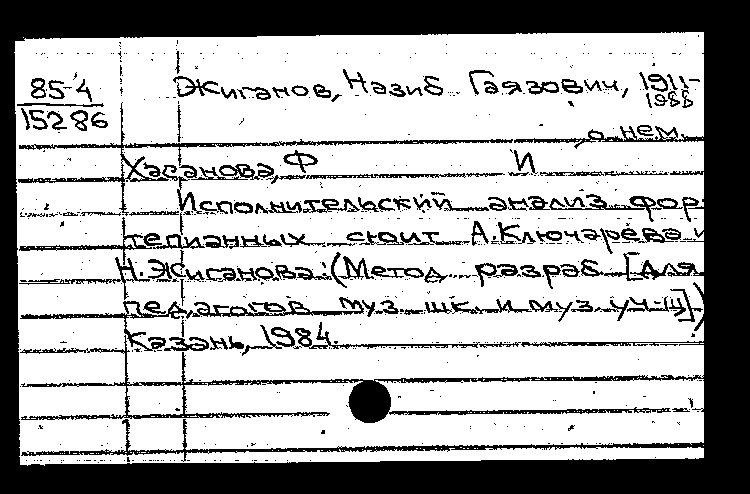 85-4
15286
Жиганов, Назиб Гаязович, 1911-
1988
о нем.
Хасанова, Ф И
Исполнительский анализ фор-
тепианных сюит А.Ключарёва и
Н.Жиганова: (Метод разраб [для
педагогов муз шк. и муз. уч-щ])
Казань, 1984.